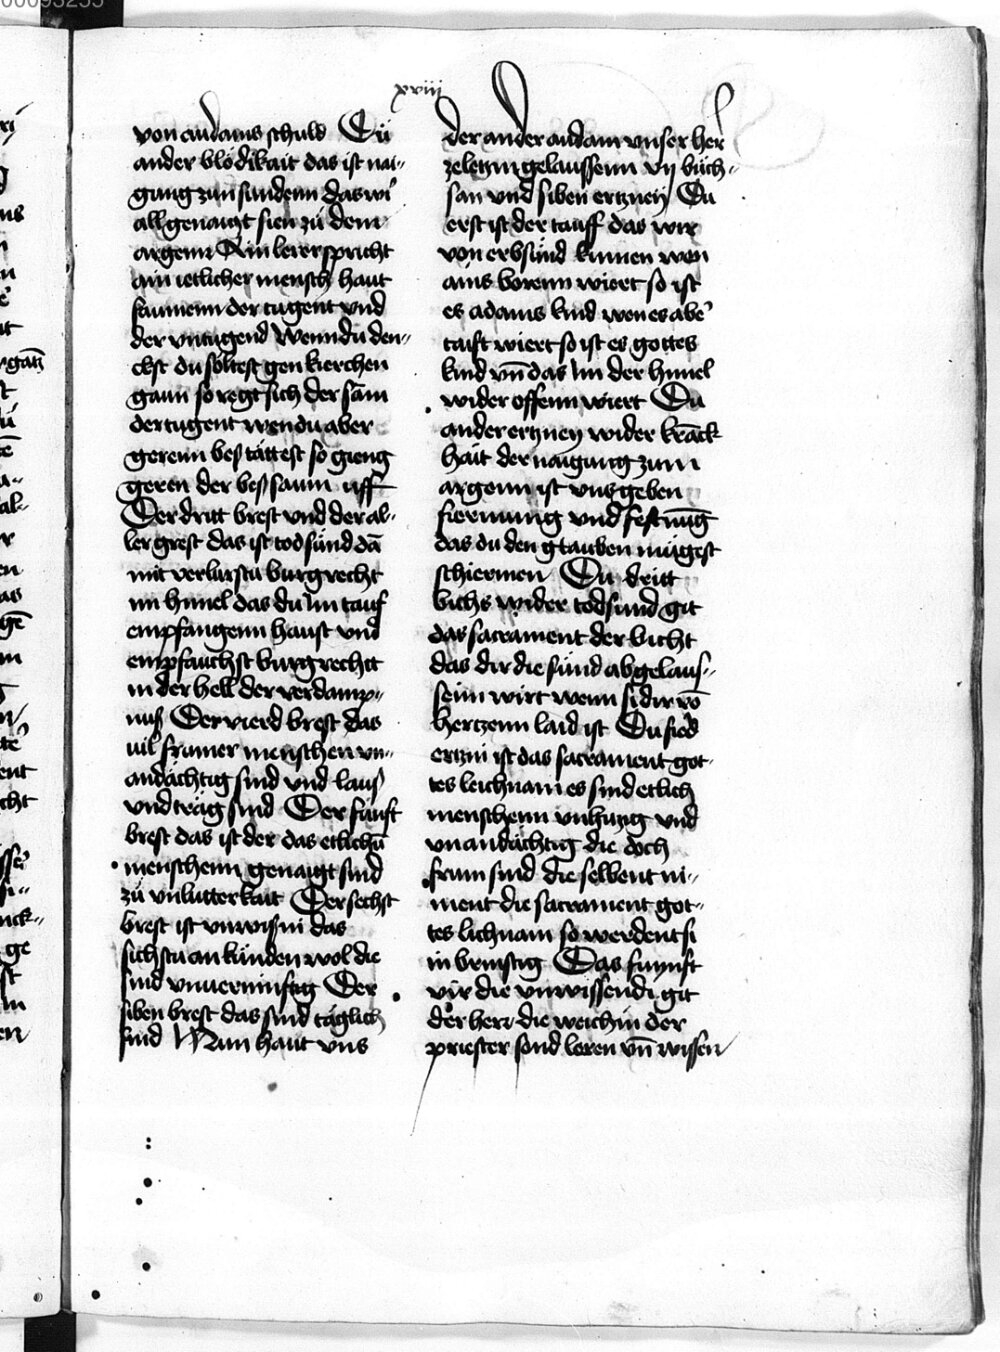 xviii
von adams schuld Dú
ander blödikait das ist nai-
gung zun sundenn das wir
all genaigt sien zú dem
argenn Ain lerer spricht
ain ietlicher mensch haut
saumenn der tugent und
der untugend Wenn du den-
ckst du söltest gen kierchen
gaun so regt sich der sam
der tugent wen du aber
gerenn bes tättest so gieng
geren der bes saum uff
Der dritt brest und der al-
ler grest das ist todsünd da
mit verlursta burgrecht
im himel das du im tauf
empfangenn haust und
empfauchst burgrechtt
in der hell der verdamp-
nus Der vierd brest das
uil framer menschen un-
andächtig sind und laus
und träg sind Der funft
brest das ist der das etlichü
menschenn genaigt sind
zú unlutterkait Der sechst
brest ist unwissin das
sich sta an künden wol die
sind unuerninftig Der
siben brest das sind täglich
sind Nun haut uns
der ander audam unser her
ze letzin gelaussenn vij büch-
san und siben ertzney Du
erst ist der tauff das wir
von erbsünd kumen wen
ains borenn wiert so ist
es adams kind wen es aber
taift wiert so ist es gottes
kind vn̄ das im der himel
wider offenn wiert Du
ander ertzney wider kranck
hait der naigung zum
argenn ist uns geben
fiermung und festnung
das du den glauben mügest
schiermen Du dritt
bichs wider todsund git
das sacrament der bicht
das dir die sünd abgelaus-
senn wirt wenn si dir vō
hertzenn laid ist Du fierd
ertzni ist das sacrament got-
tes leichnam es sind etlich
menschenn unhitzig und
unandächtig die doch
frum sind die selbent ni-
ment die sacrament got-
tes lichnam so werdent si
in brinstig Das fuynft
vir die unwissendi git
der herr die weichin der
priester sond leren vn̄ wissen